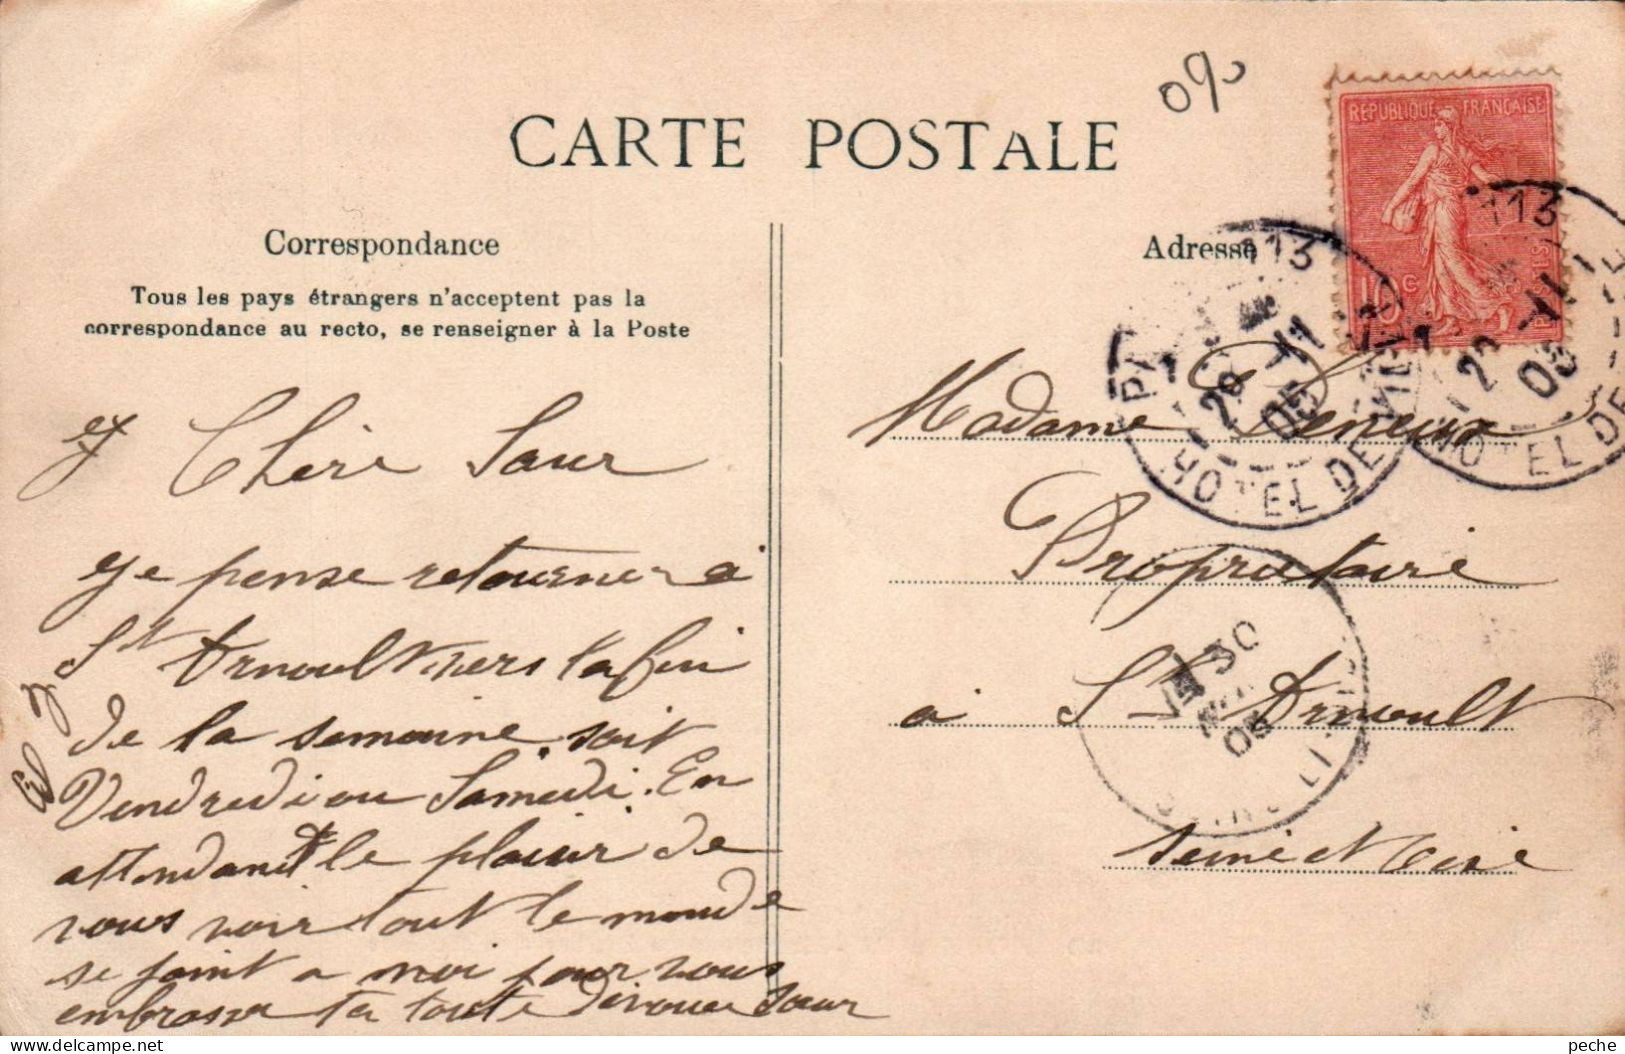 CARTE POSTALE
Correspondance
Tous les pays étrangers n'acceptent pas la
correspondance au recto, se renseigner à la Poste
Chère Sœur
Je pense retourner à
St Arnoult vers la fin
de la semaine soit
Vendredi ou Samedi. En
attendant le plaisir de
vous voir tout le monde
se joint a moi pour vous
embrasser ta toute dévouée sœur
0%
REPUBLIQUE FRANÇAISE
10 c
POSTES
113
113
HOTEL DE VILLE
HOTEL DE
29 -11
05
Adresse
Madame
Propriétaire
à St Arnoult
Seine et Oise
30
05
peche